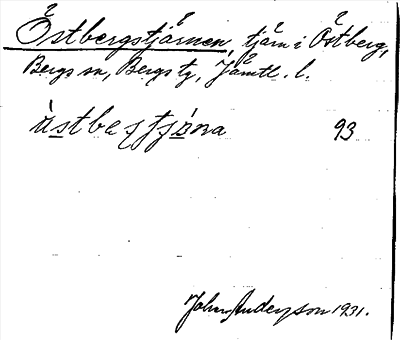 Östbergstjärnen, tjärn i Östberg,
Bergs sn, Bergs tg, Jämtl. l.
93
John Anderson 1931.